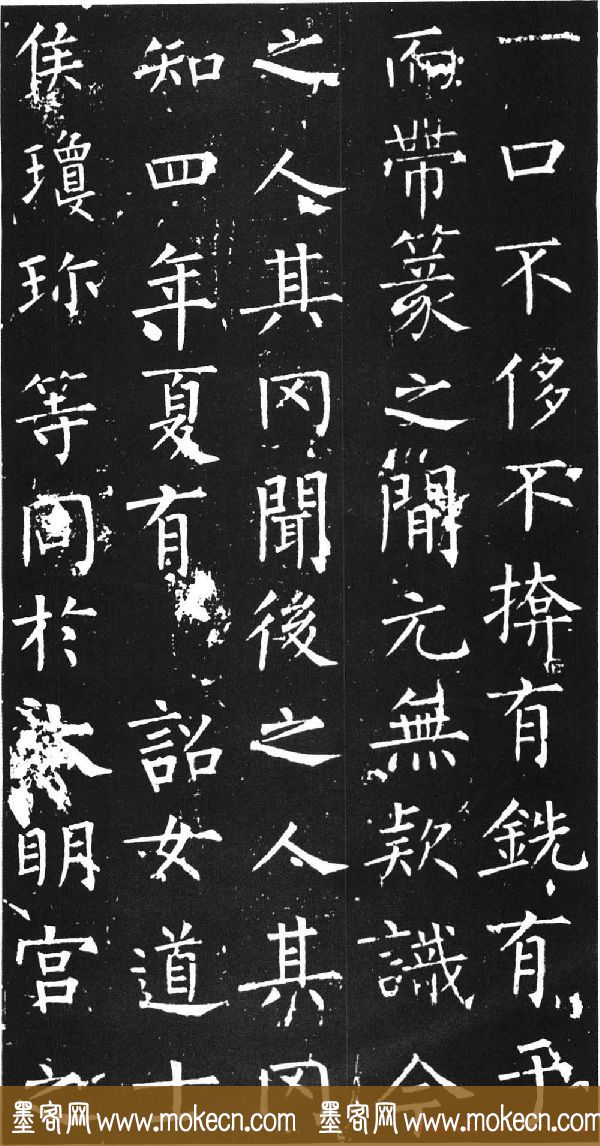 一口不侈不揜有銑有于
而帶篆之間元無欵識今
之人其罔聞後之人其罔
知四年夏有 詔女道士
侯瓊珍等同於大明宮之
墨客网 www.mokecn.com 墨客网 www.mokecn.com